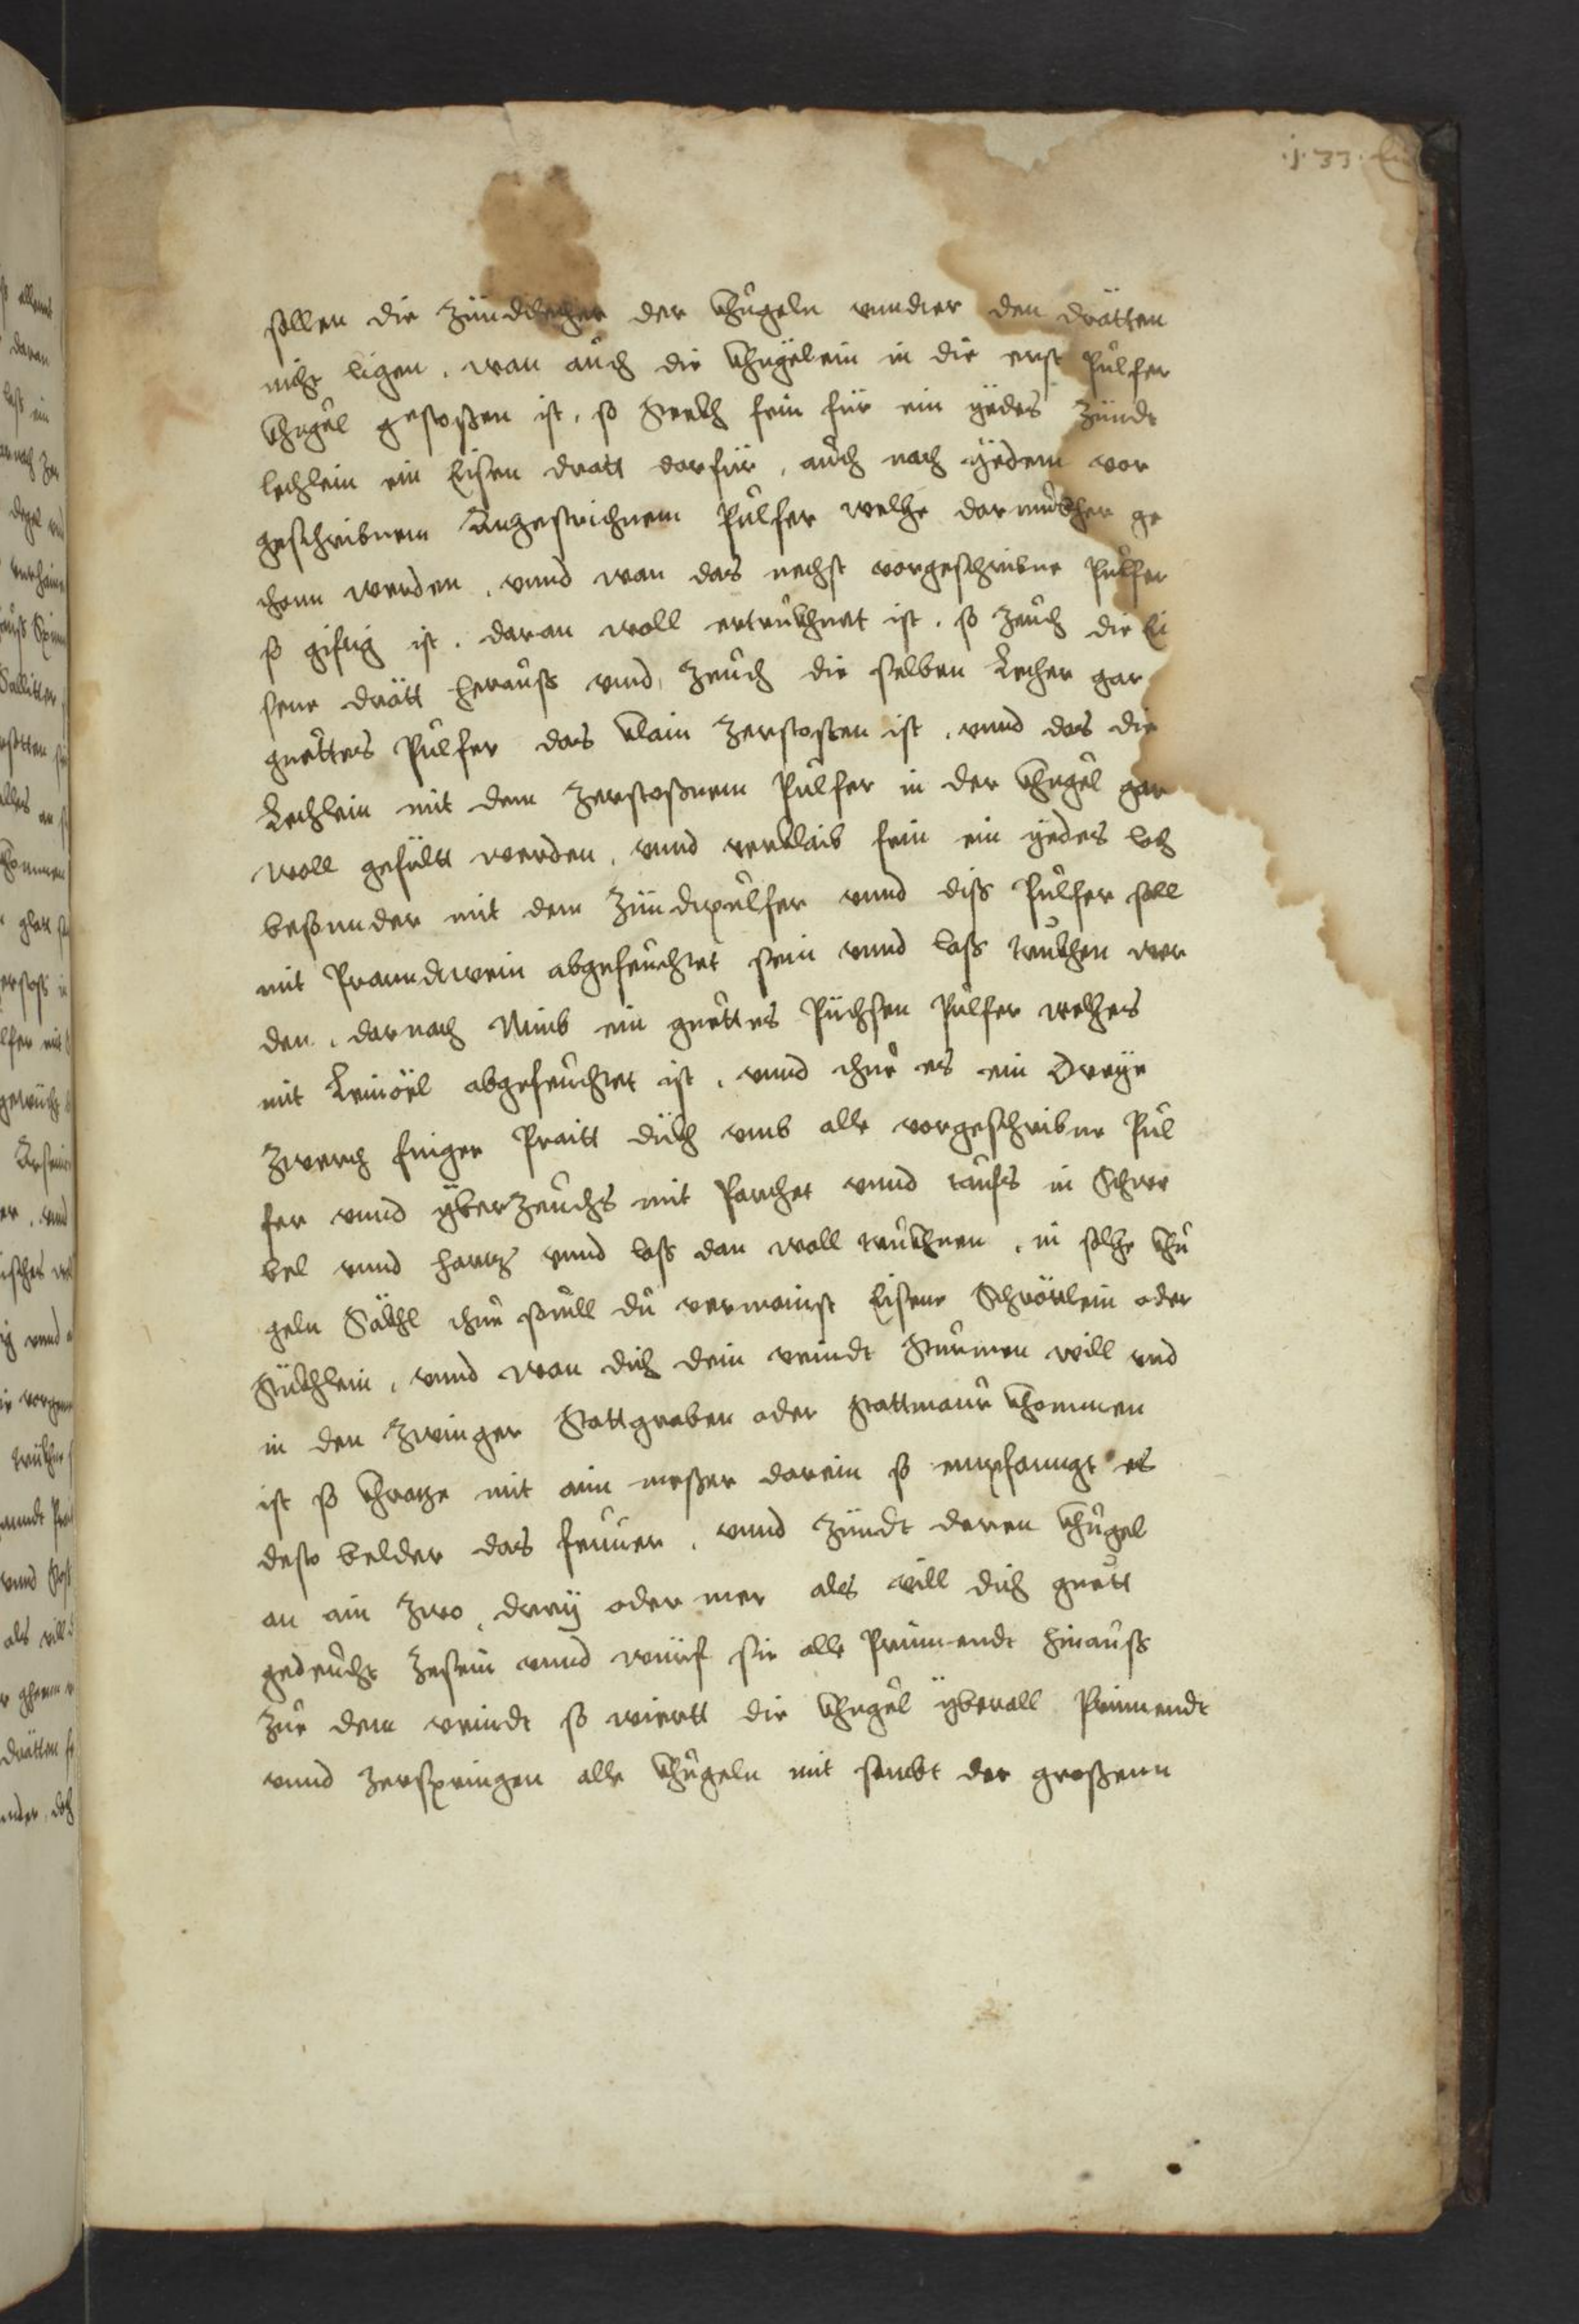 .j.33.
sollen die Zündtlecher der khugeln vnndter den drätten
nicht ligen. wan auch die khugelein in die erst Pulfer
khugel gestossen ist, so Steckh fein für ein yedes Zündt
lechlein ein Eisen dratt darfür, auch nach yedem vor
geschribnem Angestrichnem Pulfer welche darnachher ge
thonn werden, vnnd wan das nechst vorgeschribne Pulfer
so gifftig ist. daran woll ertrukhnet ist, so Zeuch die Ei
sene drätt herauss vnnd, Zeuch die selben Lecher gar
guettes Pulfer das klain Zerstossen ist, vnnd das die
Lechlein mit dem Zerstossnem Pulfer in der khugel gar
woll gefültt werden, vnnd verklaib fein ein yedes loch
besonnder mit dem Zündtpulfer vnnd diss Pulfer soll
mit Pranndtwein abgefeuchtet sein vnnd lass trukhen wer
den, darnach Nimb ein guettes Püchsen Pulfer welches
mit Leinöel abgefeuchtet ist, vnnd thue es ein Dreye
Zwerch finger Praitt dickh vmb alle vorgeschribne Pul
fer vnnd yberZeuchs mit Parchet vnnd tauffs in Schwe
bel vnnd hartz vnnd lass dan woll trukhnen, in solche khu
geln Säckhl thue souill du vermainst Eisene Schrötlein oder
Stückhlein, vnnd wan dich dein veindt Sturmen will vnd
in den Zwinger Stattgraben oder Stattmaur khommen
ist so khratze mit aim messer darein so empfanngt es
desto belder das feuuer, vnnd Zündt deren khugel
an ain Zwo, drey oder mer als vill dich guett
gedeucht Zesein vnnd würf sie alle Prinnendt hinauss
Zue dem veindt so wiertt die khugel yberall Prinnendt
vnnd Zerspringen alle khugeln mit sambt der grossenn